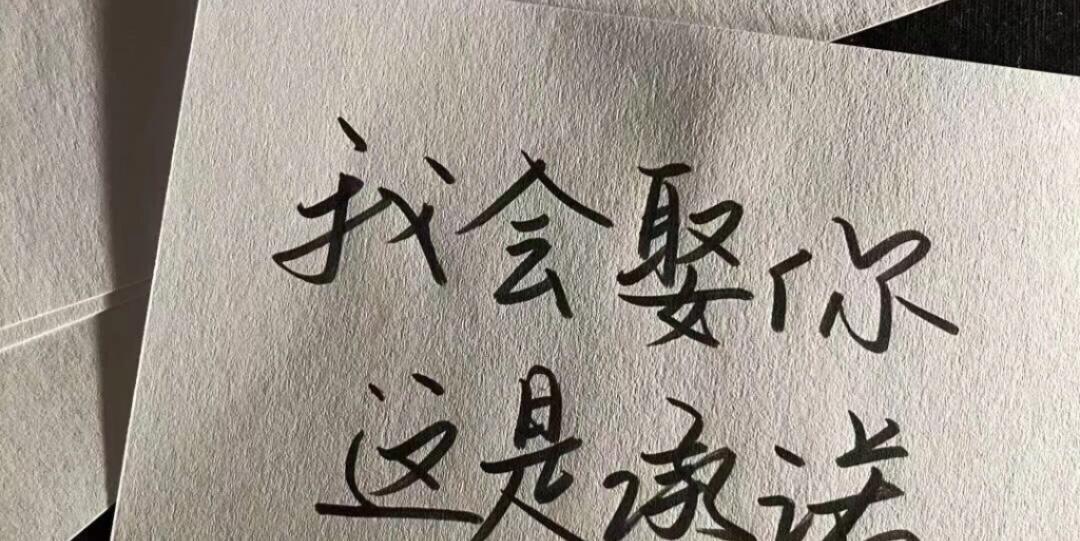 我会娶你
这是承诺